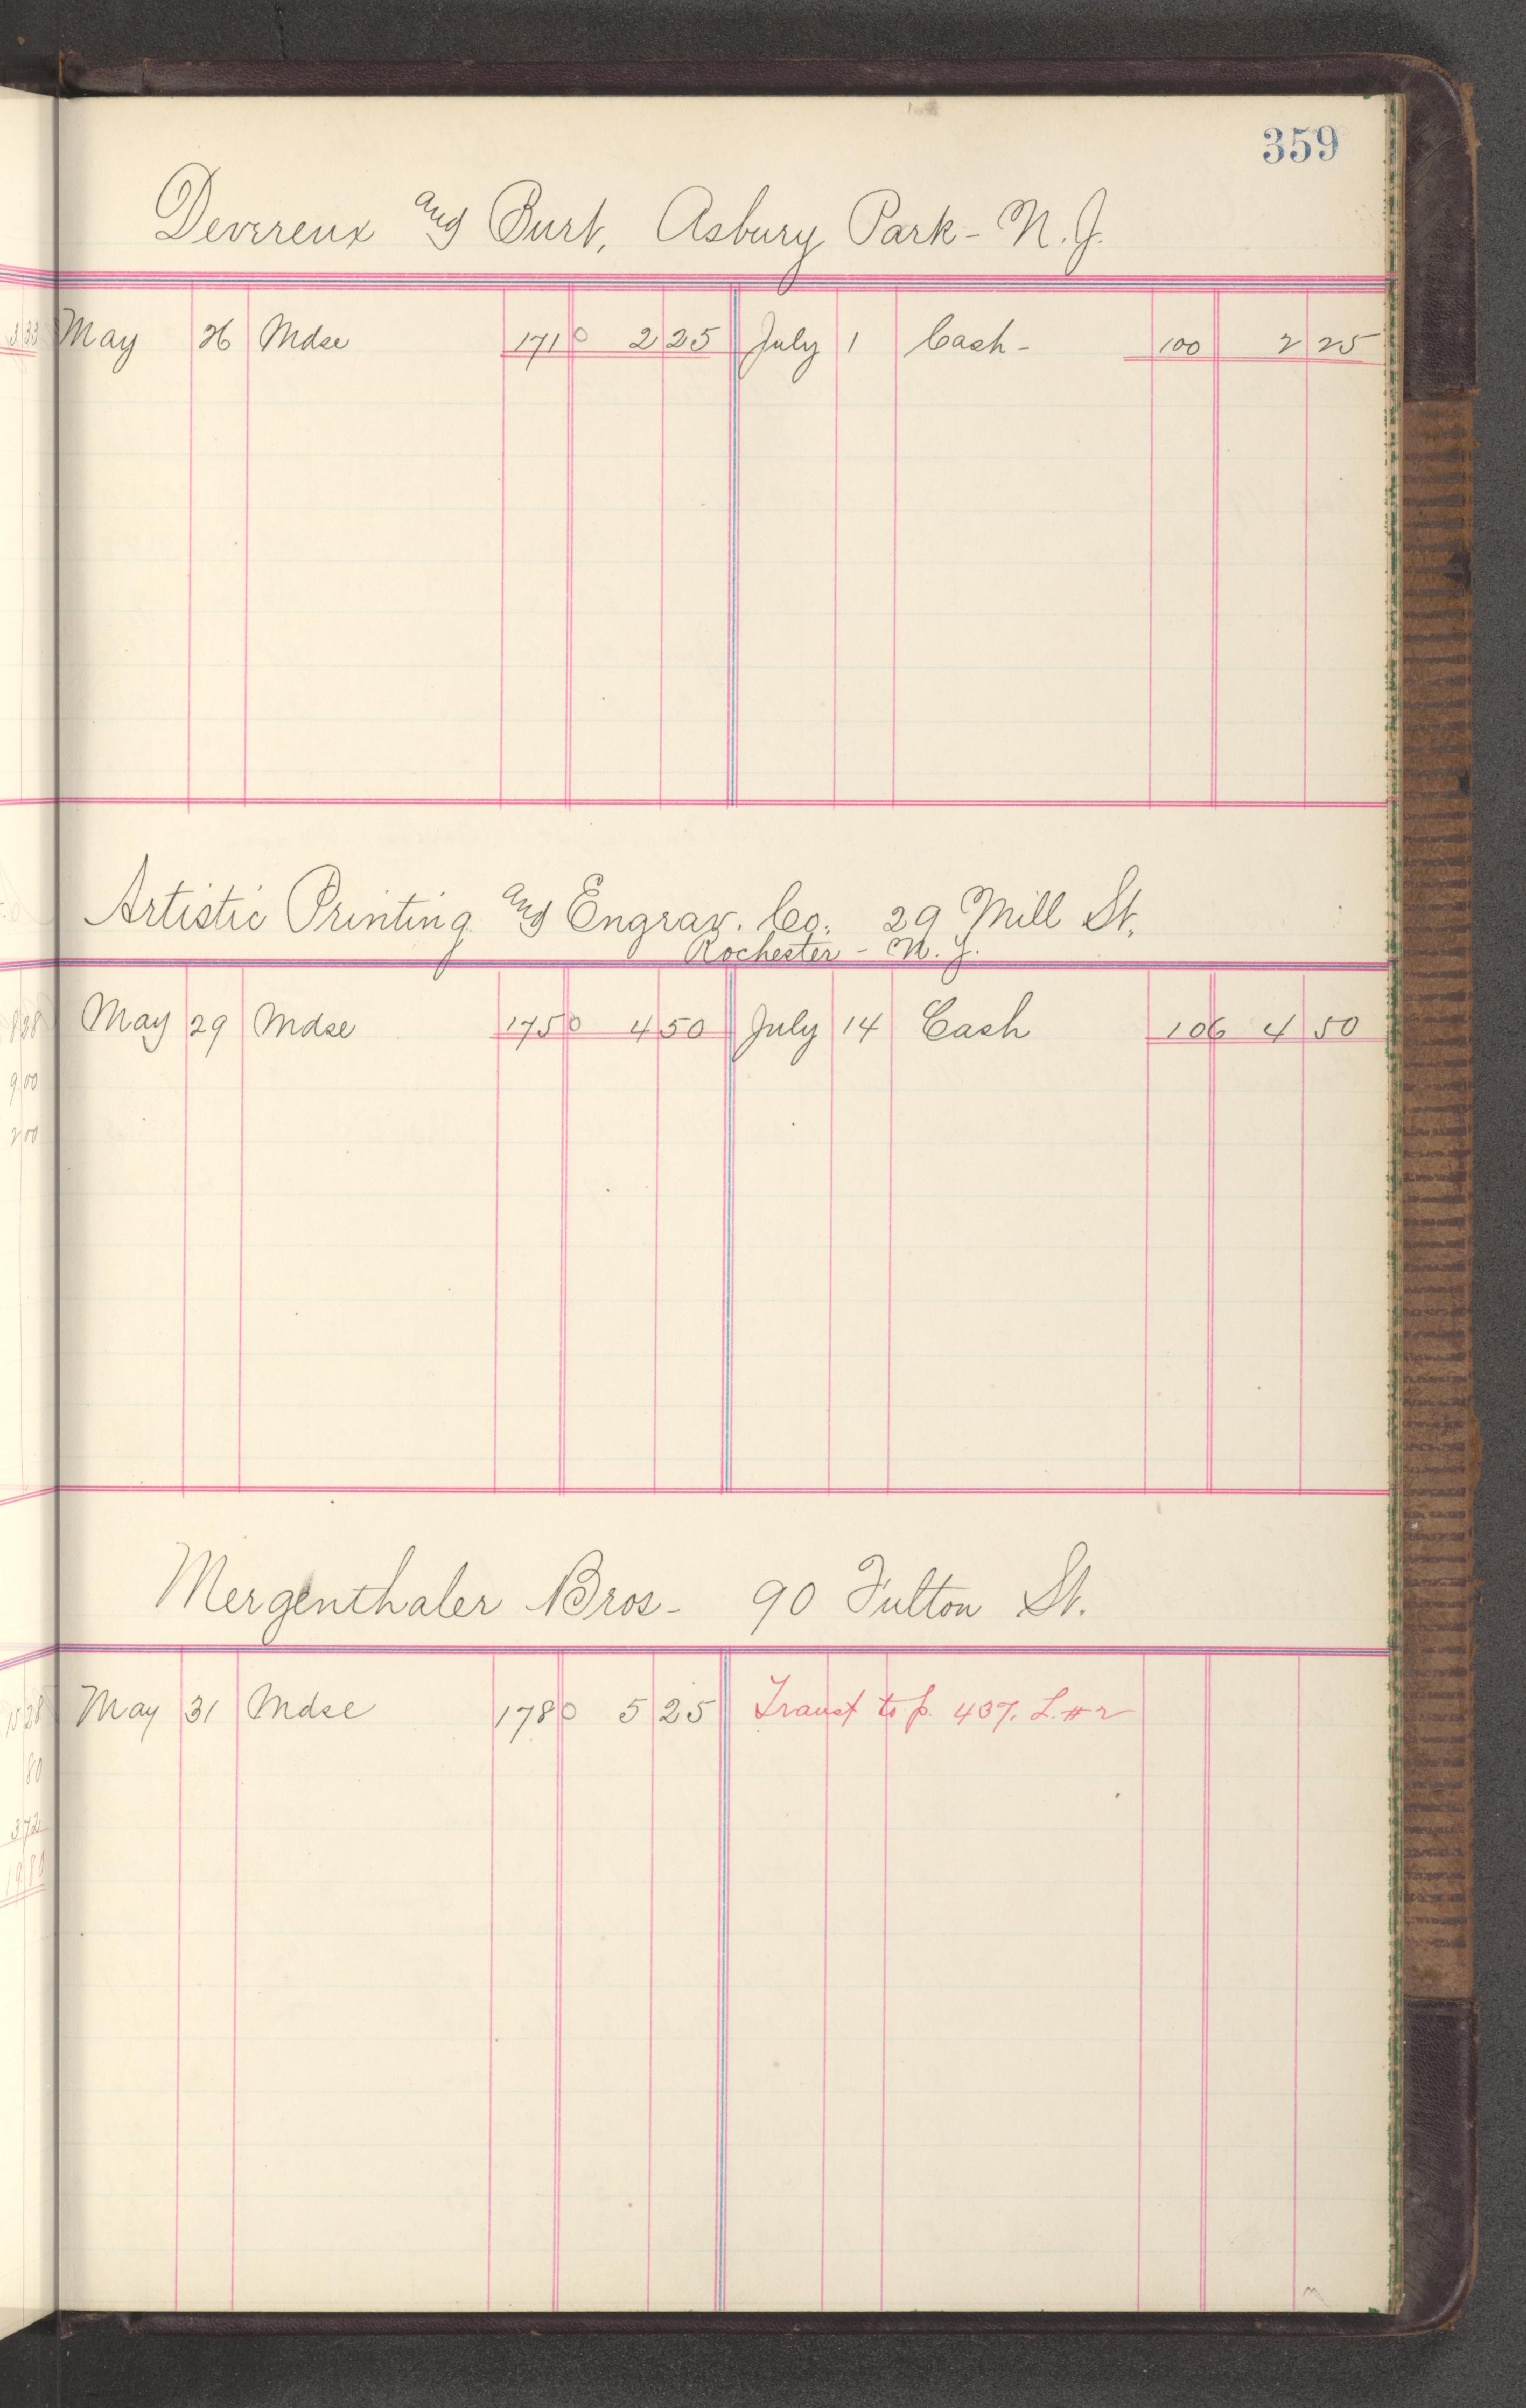 359
Devereux and Burt, Asbury Park - N.J.
May 26 Mdse 1710 2 25 July 1 Cash - 100 2 25
Artistic Printing and Engrav. Co. 29 Mill St.
Rochester - N.Y.
May 29 Mdse 1750 4 50 July 14 Cash 106 4 50
Mergenthaler Bros - 90 Fulton St.
May 31 Mdse 1780 5 25 Transf to p. 437. L. # 2